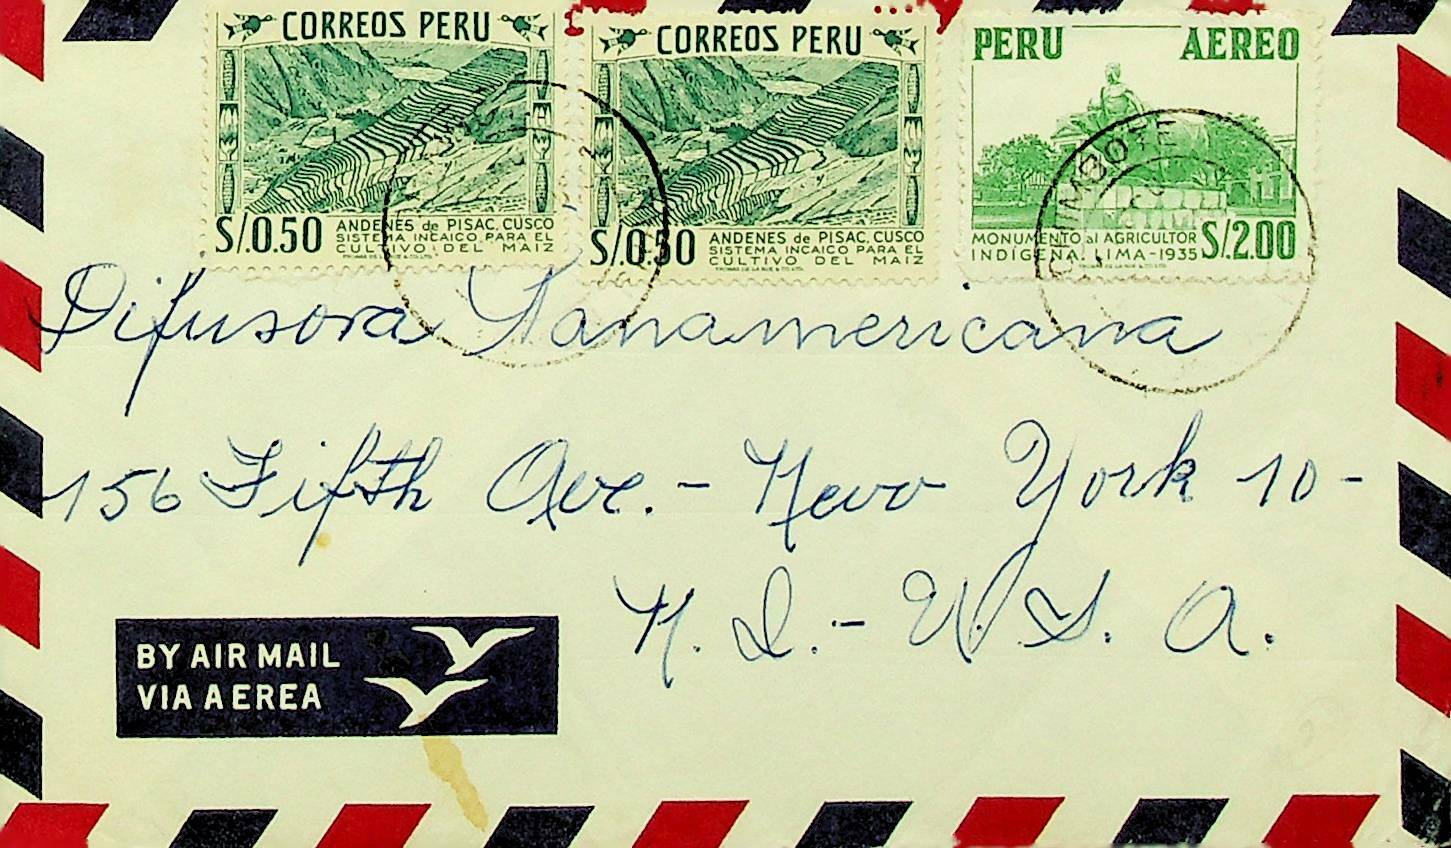 CORREOS PERU
S/.0.50 ANDENES de PISAC, CUSCO
SISTEMA INCAICO PARA EL
CULTIVO DEL MAIZ
THOMAS DE LA RUE & CO. LTD.
CORREOS PERU
S/.0.50 ANDENES de PISAC, CUSCO
SISTEMA INCAICO PARA EL
CULTIVO DEL MAIZ
THOMAS DE LA RUE & CO. LTD.
PERU AEREO
MONUMENTO al AGRICULTOR
INDÍGENA. LIMA-1935 S/.2.00
THOMAS DE LA RUE & CO. LTD.
Difusora Panamericana
156 Fifth Ave. - New York 10 -
N. I. - U. S. A.
BY AIR MAIL
VIA AEREA